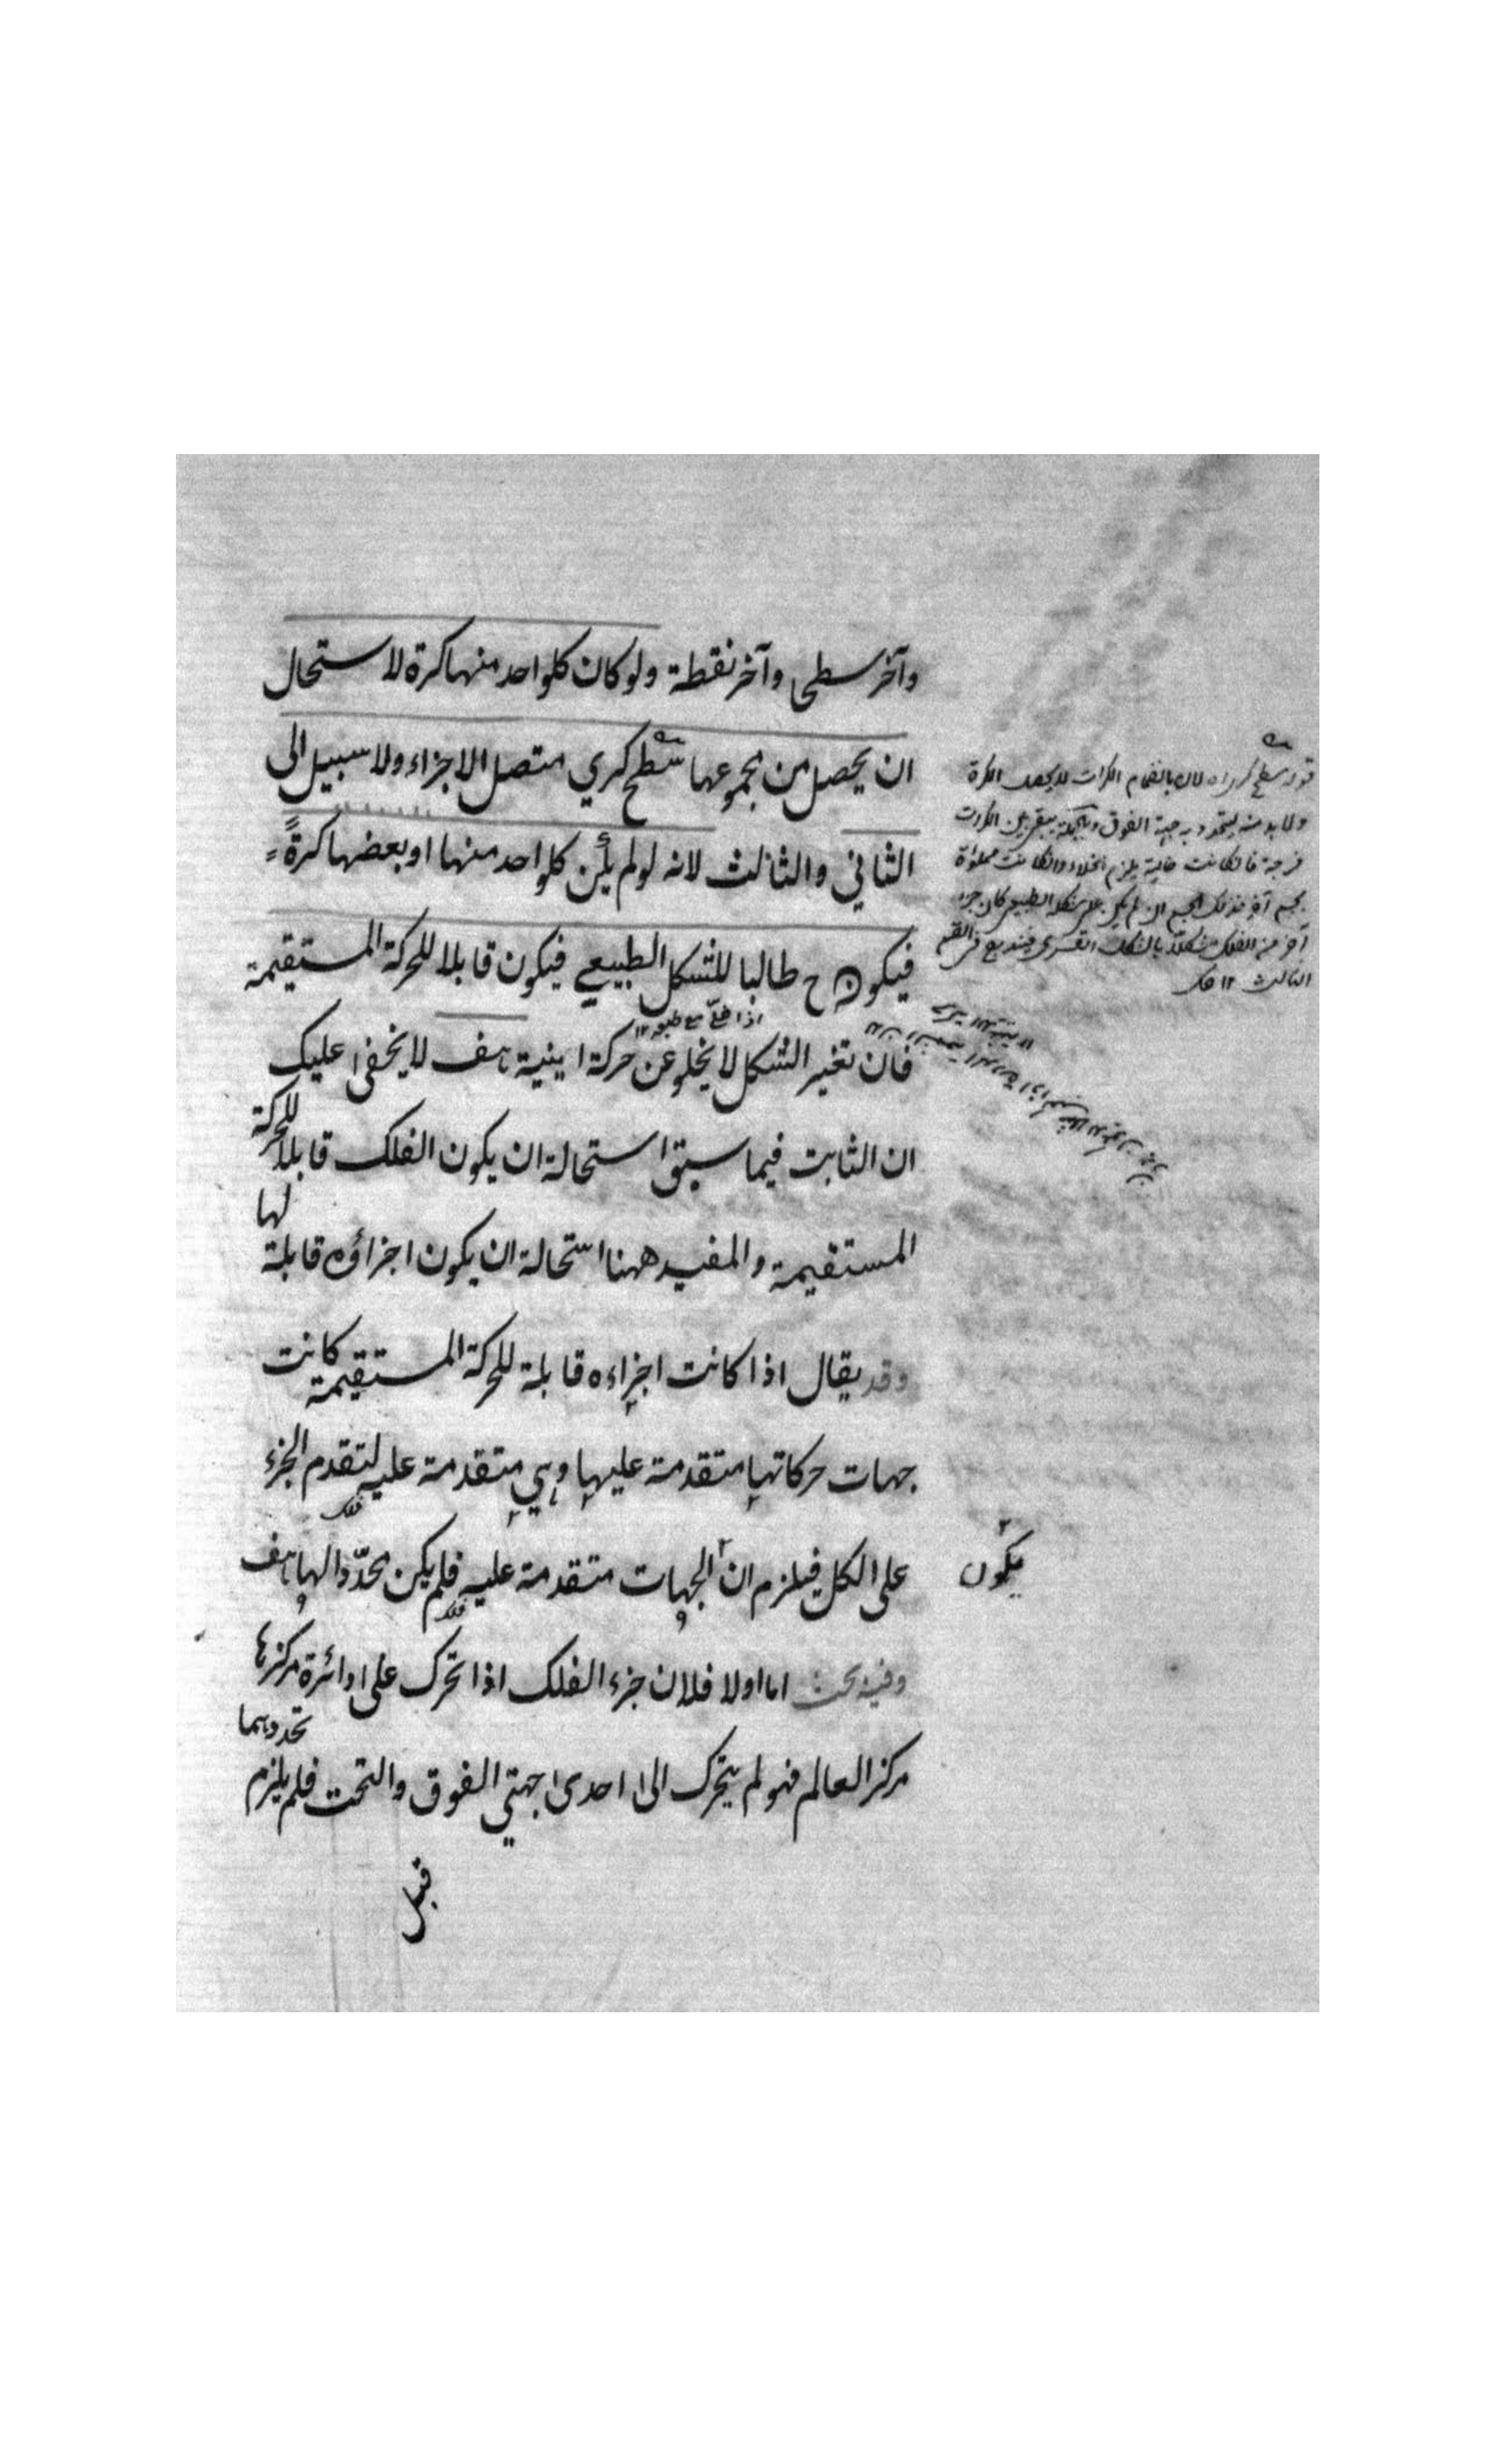 وآخر سطحى وآخر نقطة ولو كان كلواحد منها كرة لاستحال
ان يحصل من مجموعها سطح كري متصل الاجزاء ولا سبيل الى
الثاني والثالث لانه لو لم يكن كلواحد منها او بعضها كرةً
فيكون ح طالبا للشكل الطبيعي فيكون قابلا للحركة المستقيمة
فان تغير الشكل لا يخلو عن حركة اينية هف لا يخفى عليك
ان الثابت فيما سبق استحالة ان يكون الفلك قابلا للحركة
المستقيمة والمفيد ههنا استحالة ان يكون اجزاؤه قابلة لها
وقد يقال اذا كانت اجزاءه قابلة للحركة المستقيمة كانت
جهات حركاتها متقدمة عليها وهي متقدمة عليه لتقدم الجزء
فلك
على الكل فيلزم ان الجهات متقدمة عليه فلم يكن محدّدا لها هف
فلك
يكون
وفيه بحث اما اولا فلان جزء الفلك اذا تحرك على دائرة مركزها
مركز العالم فهو لم يتحرك الى احدى جهتي الفوق والتحت فلم يلزم تحددهما
قبل
قوله سطح كري اه لان بانضمام الكرات لا يحصل الكرة
ولا بد منه ليتحدد به جهة الفوق يبقى بين الكرات
فرجة فان كانت خالية يلزم الخلاء وان كانت مملوة
بجسم آخر فذلك الجسم ان لم يكن على شكله الطبيعي كان جزء
آخر من الفلك متشكلا بالشكل القسري فيندرج في القسم
الثالث ١٢